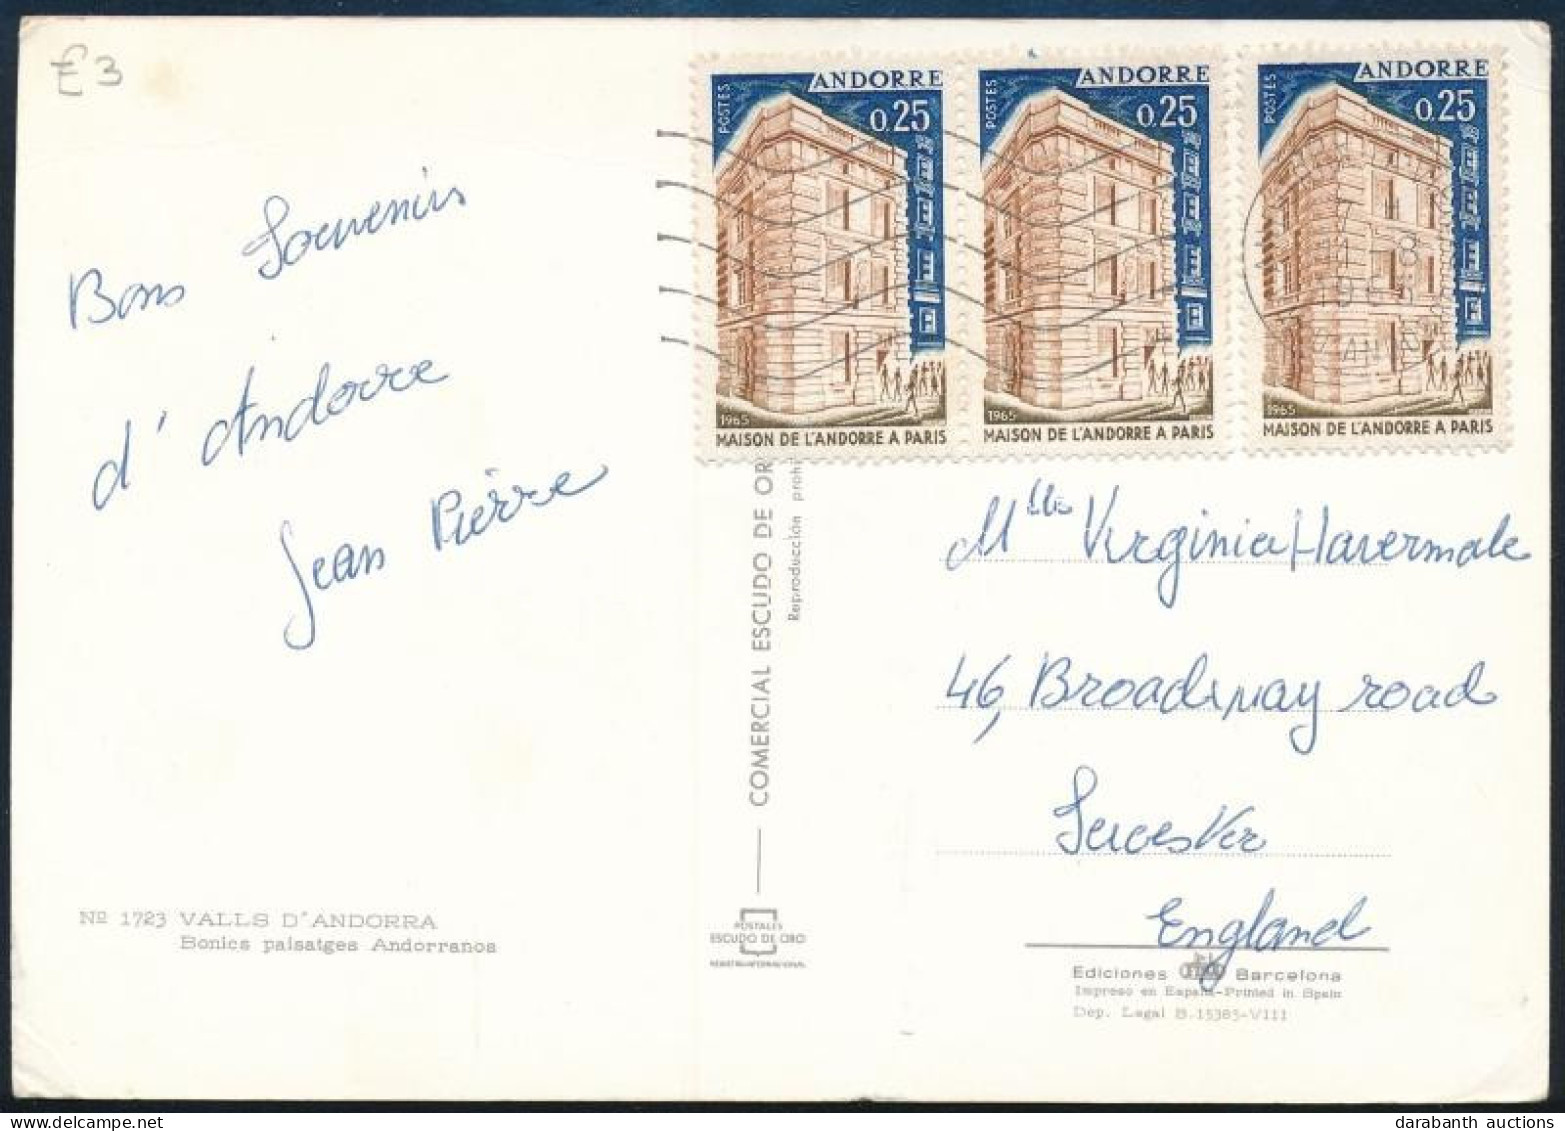 £3
Bons Souvenirs
d'Andorre
Jean Pierre
Nº 1723 VALLS D'ANDORRA
Bonics paisatges Andorranos
POSTES
ANDORRE
0,25
1965
MAISON DE L'ANDORRE A PARIS
POSTES
ANDORRE
0,25
1965
MAISON DE L'ANDORRE A PARIS
POSTES
ANDORRE
0,25
1965
MAISON DE L'ANDORRE A PARIS
COMERCIAL ESCUDO DE OR
Reproducción prohi
POSTALES
ESCUDO DE ORO
REGISTRO INTERNACIONAL
Mlle Virginia Havermale
46, Broadway road
Leicester
England
Ediciones Barcelona
Impreso en España-Printed in Spain
Dep. Legal B. 15385-VIII
darabanth auctions